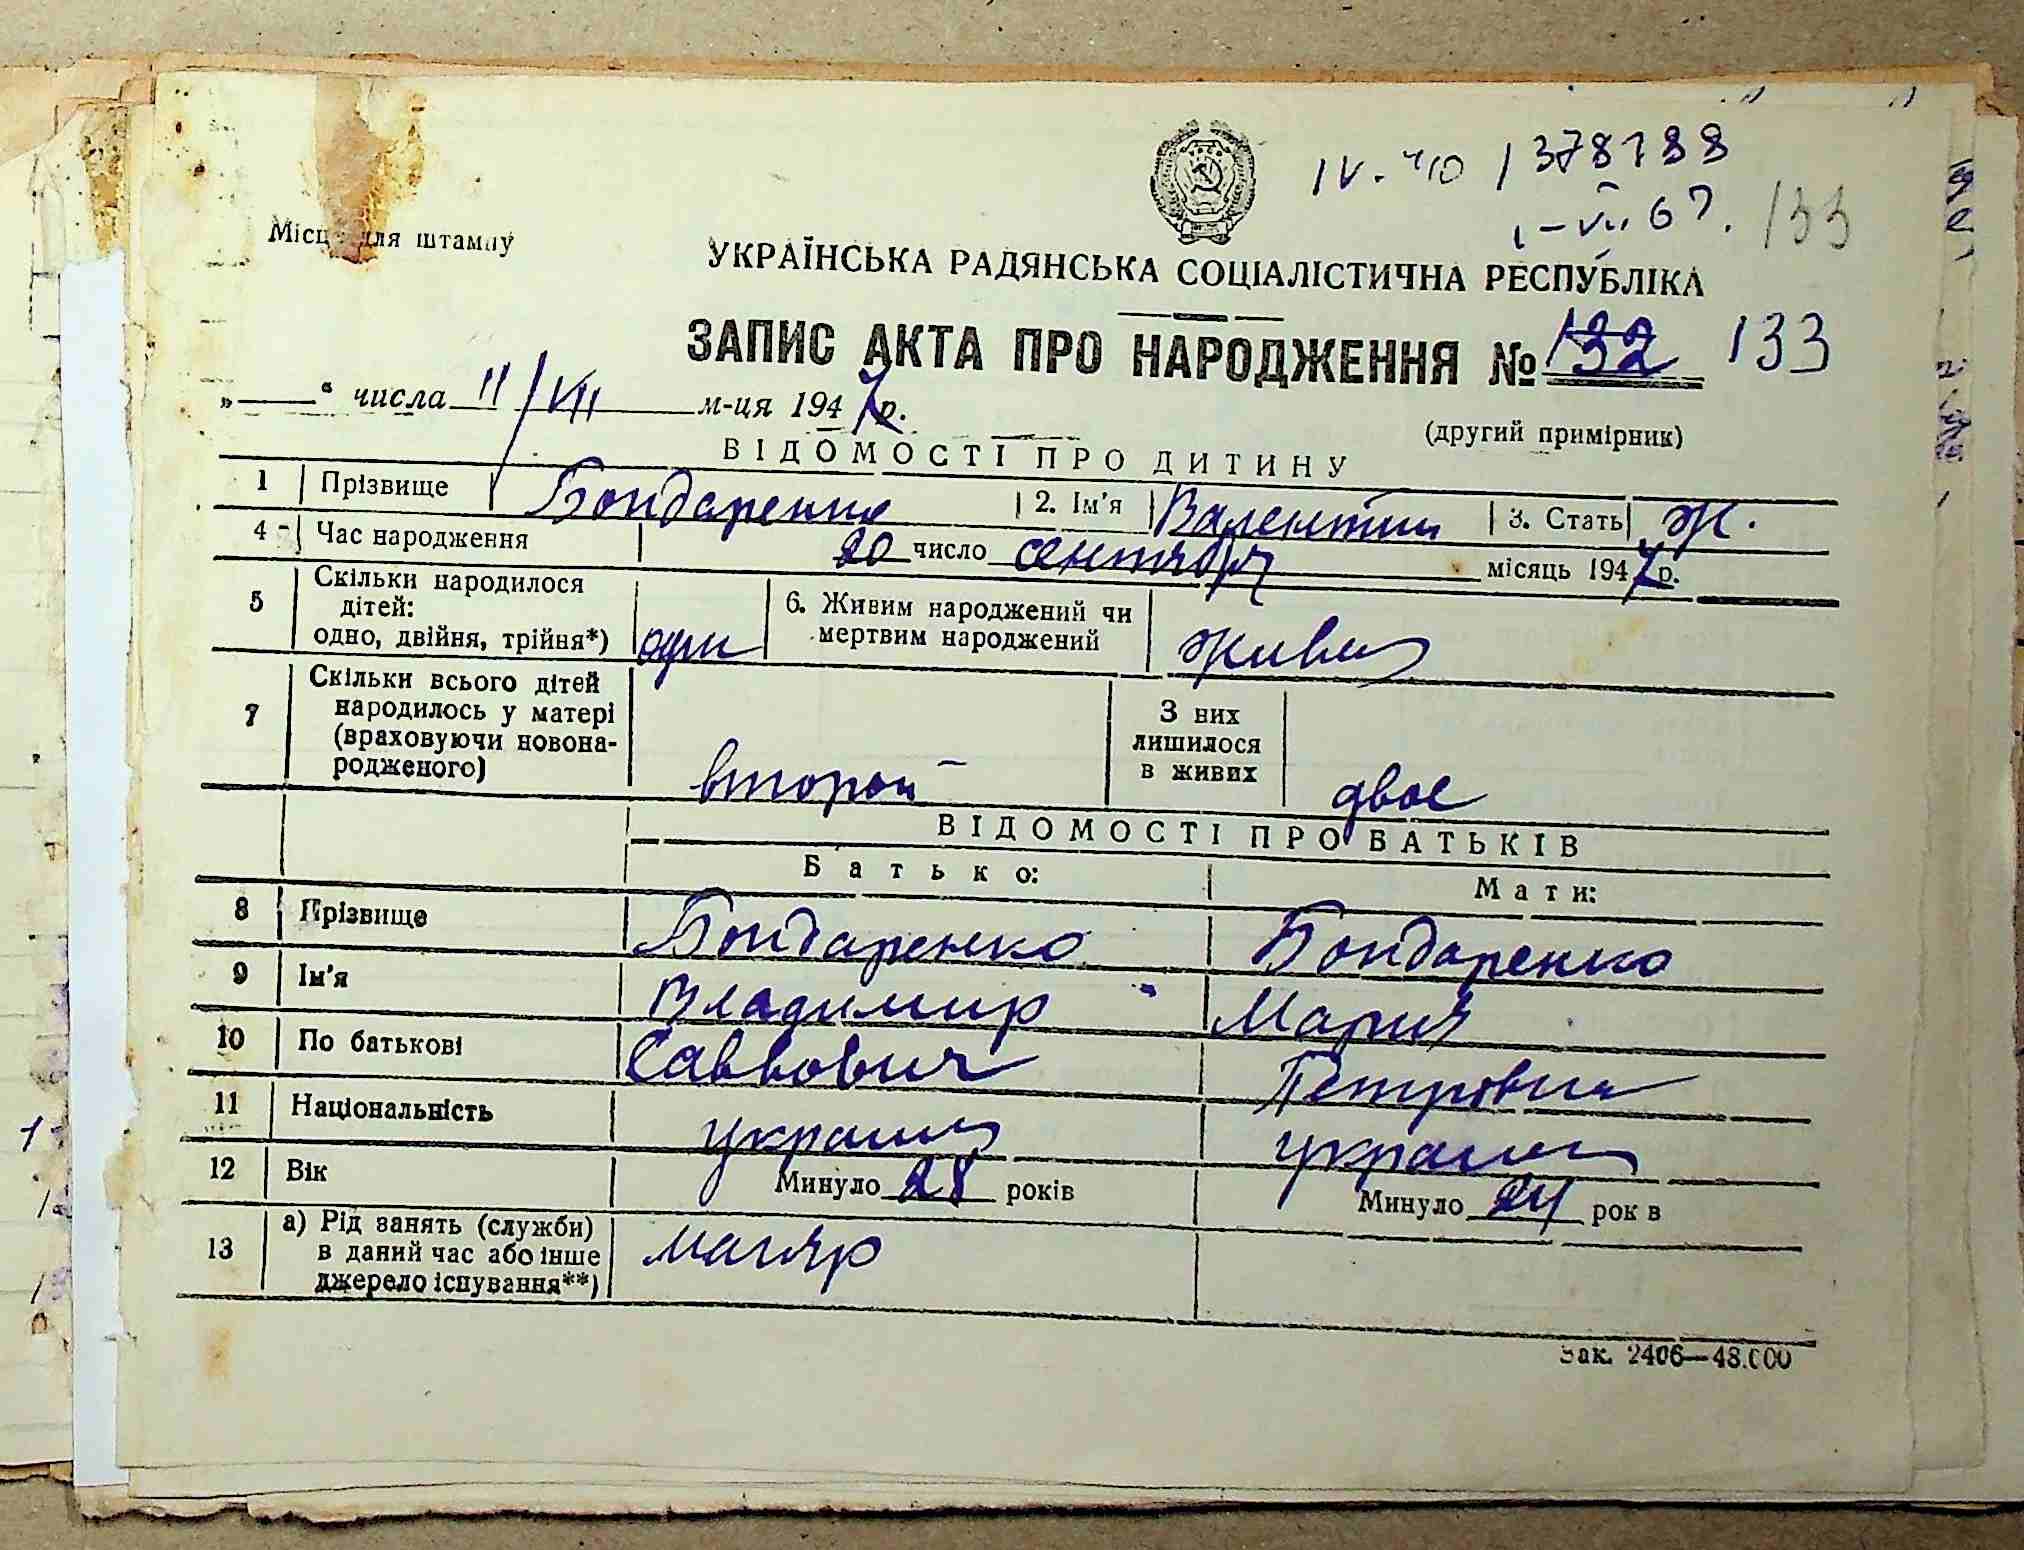 IV-ЧЮ 1378188
1-VII 67. 133
Місце для штампу
УКРАЇНСЬКА РАДЯНСЬКА СОЦІАЛІСТИЧНА РЕСПУБЛІКА
ЗАПИС АКТА ПРО НАРОДЖЕННЯ № 132 133
„ “ числа 11/VII м-ця 1947 р.
(другий примірник)
ВІДОМОСТІ ПРО ДИТИНУ
1 Прізвище Бондаренко 2. Ім'я 3. Стать Ж.
4 Час народження 20 число сентября місяць 1947 р.
5 Скільки народилося
дітей:
одно, двійня, трійня*) один 6. Живим народжений чи
мертвим народжений
7 Скільки всього дітей
народилось у матері
(враховуючи новона-
родженого) второй З них
лишилося
в живих двое
ВІДОМОСТІ ПРО БАТЬКІВ
Батько: Мати:
8 Прізвище Бондаренко Бондаренко
9 Ім'я Владимир Мария
10 По батькові Саввович Петровна
11 Національність
12 Вік Минуло 28 років Минуло 24 рок в
13 а) Рід занять (служби)
в даний час або інше
джерело існування**) маляр
Зак. 2406—48.000